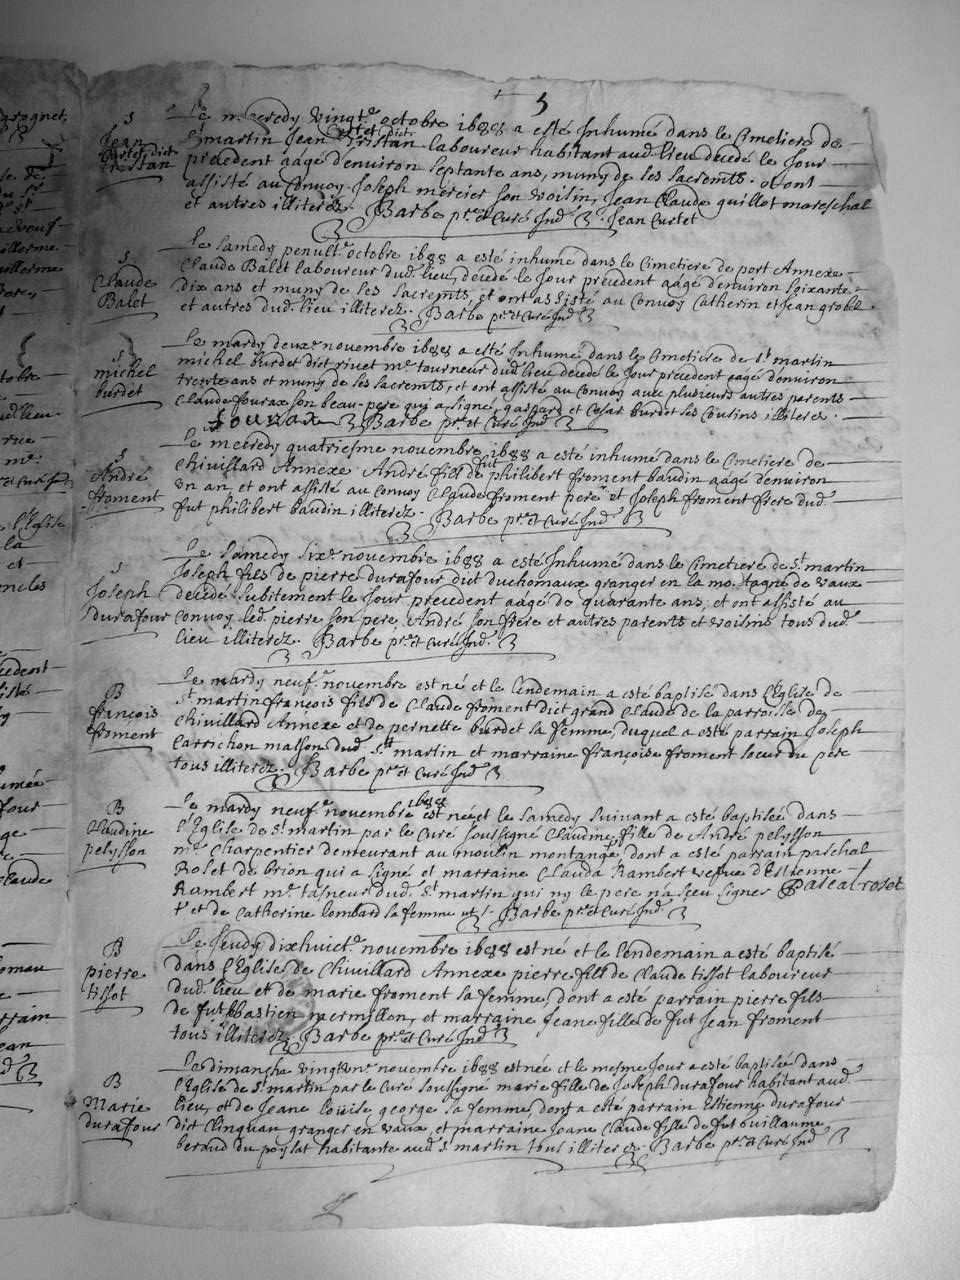 5
S
Jean
Curtet dict
tristan
Le mecredy vingte octobre 1688 a esté Inhumé dans le Cimetiere de
St martin Jean Curtet dict Tristan laboureur habitant aud. lieu decedé le Jour
precedent aagé d'environ septante ans, muny de ses sacremts. et ont
assisté au Convoy Joseph mercier son voisin, Jean Claude guillot mareschal
et autres illiterez. Barbe ptre et Curé Ind. Jean Curtet
S
Claude
Balet
Le samedy penulte octobre 1688 a esté inhumé dans le Cimetiere de port Annexe
Claude Balet laboureur dud. lieu, decedé le Jour precedent aagé d'environ soixante
dix ans et muny de ses sacremts, et ont assisté au Convoy Catherin et Jean grobel
et autres dud. lieu illiterez. Barbe ptre et Curé Ind.
S
michel
burdet
Le mardy deuxe novembre 1688 a esté Inhumé dans le Cimetiere de St. martin
michel burdet dict rivet me tourneur dud. lieu decedé le Jour precedent aagé d'environ
trente ans et muny de ses sacremts, et ont assisté au Convoy avec plusieurs autres parents
Claude fourax son beau-pere qui a signé, gaspard et Cesar burdet ses Cousins illiterez.
fourax Barbe ptre et Curé Ind
S
André
froment
Le mecredy quatriesme novembre 1688 a esté inhumé dans le Cimetiere de
Chivillard Annexe André fils de fut philibert froment baudin aagé d'environ
un an, et ont assisté au Convoy Claude froment pere et Joseph froment frere dud.
fut philibert baudin illiterez. Barbe ptre et Curé Ind
S
Joseph
durafour
Le samedy sixe novembre 1688 a esté Inhumé dans le Cimetiere de St. martin
Joseph fils de pierre durafour dict duchomaux granger en la motagne de vaux
decedé subitement le Jour precedent aagé de quarante ans, et ont assisté au
Convoy led. pierre son pere, André son frere et autres parents et voisins tous dud.
lieu illiterez. Barbe ptre et Curé Ind.
B
françois
froment
Le mardy neufe novembre est né et le lendemain a esté baptisé dans l'Eglise de
St martin françois fils de Claude froment dict grand Claude de la parroisse de
Chivillard Annexe et de pernette burdet sa femme, duquel a esté parrain Joseph
Carrichon masson dud. St martin et marraine françoise froment soeur du pere
tous illiterez. Barbe ptre et Curé Ind
B
Claudine
pelysson
Le mardy neufe novembre 1688 est née et le samedy suivant a esté baptisée dans
l'Eglise de St. martin par le Curé soussigné Claudine fille de André pelysson
me Charpentier demeurant au moulin montange, dont a esté parrain paschal
Roset de brion qui a signé et marraine Clauda Rambert vefve d'Estienne
Rambert me tasneur dud. St martin qui ny le pere n'a sceu signer Pascal roset
+ et de Catherine lombard sa femme ut s. Barbe ptre et Curé Ind.
B
pierre
tissot
Le Jeudy dixhuicte novembre 1688 est né et le lendemain a esté baptisé
dans l'Eglise de Chivillard Annexe pierre fils de Claude tissot laboureur
dud. lieu et de marie froment sa femme, dont a esté parrain pierre fils
de fut bastien mermillon, et marraine Jeane fille de fut Jean froment
tous illiterez. Barbe ptre et Curé Ind
B
Marie
durafour
Le dimanche vingtune novembre 1688 est née et le mesme Jour a esté baptisée dans
l'Eglise de St martin par le Curé soussigné marie fille de Joseph durafour habitant aud.
lieu, et de Jeane louise george sa femme, dont a esté parrain Estienne durafour
dict Clinquan granger en vaux, et marraine Jeane Claude fille de fut Guillaume
beraud du poysat habitante aud. St martin tous illiterez Barbe ptre et Curé Ind